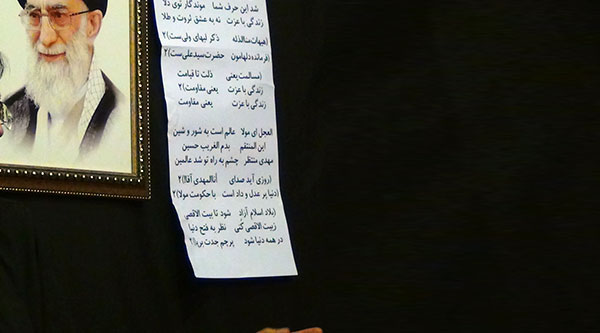 شد این حرف شما موندگار توی دلا
زندگی با عزت نه به عشق ثروت و طلا
(هیهات مناالذله ذکر لبهای ولی ست)۲
(فرمانده دلهامون حضرت سیدعلی ست)۲
(مسالمت یعنی ذلت تا قیامت
زندگی با عزت یعنی مقاومت)۲
زندگی با عزت یعنی مقاومت
العجل ای مولا عالم است به شور و شین
این المنتقم بدم الغریب حسین
مهدی منتظر چشم به راه تو شد عالمین
(روزی آید صدای أناالمهدی آقا)۲
(دنیا پر عدل و داد است با حکومت مولا)۲
(بلاد اسلام آزاد شود تا بیت الاقصی
زبیت الاقصی کنی نظر به فتح دنیا
در همه دنیا شود پرچم جدت برپا)۲